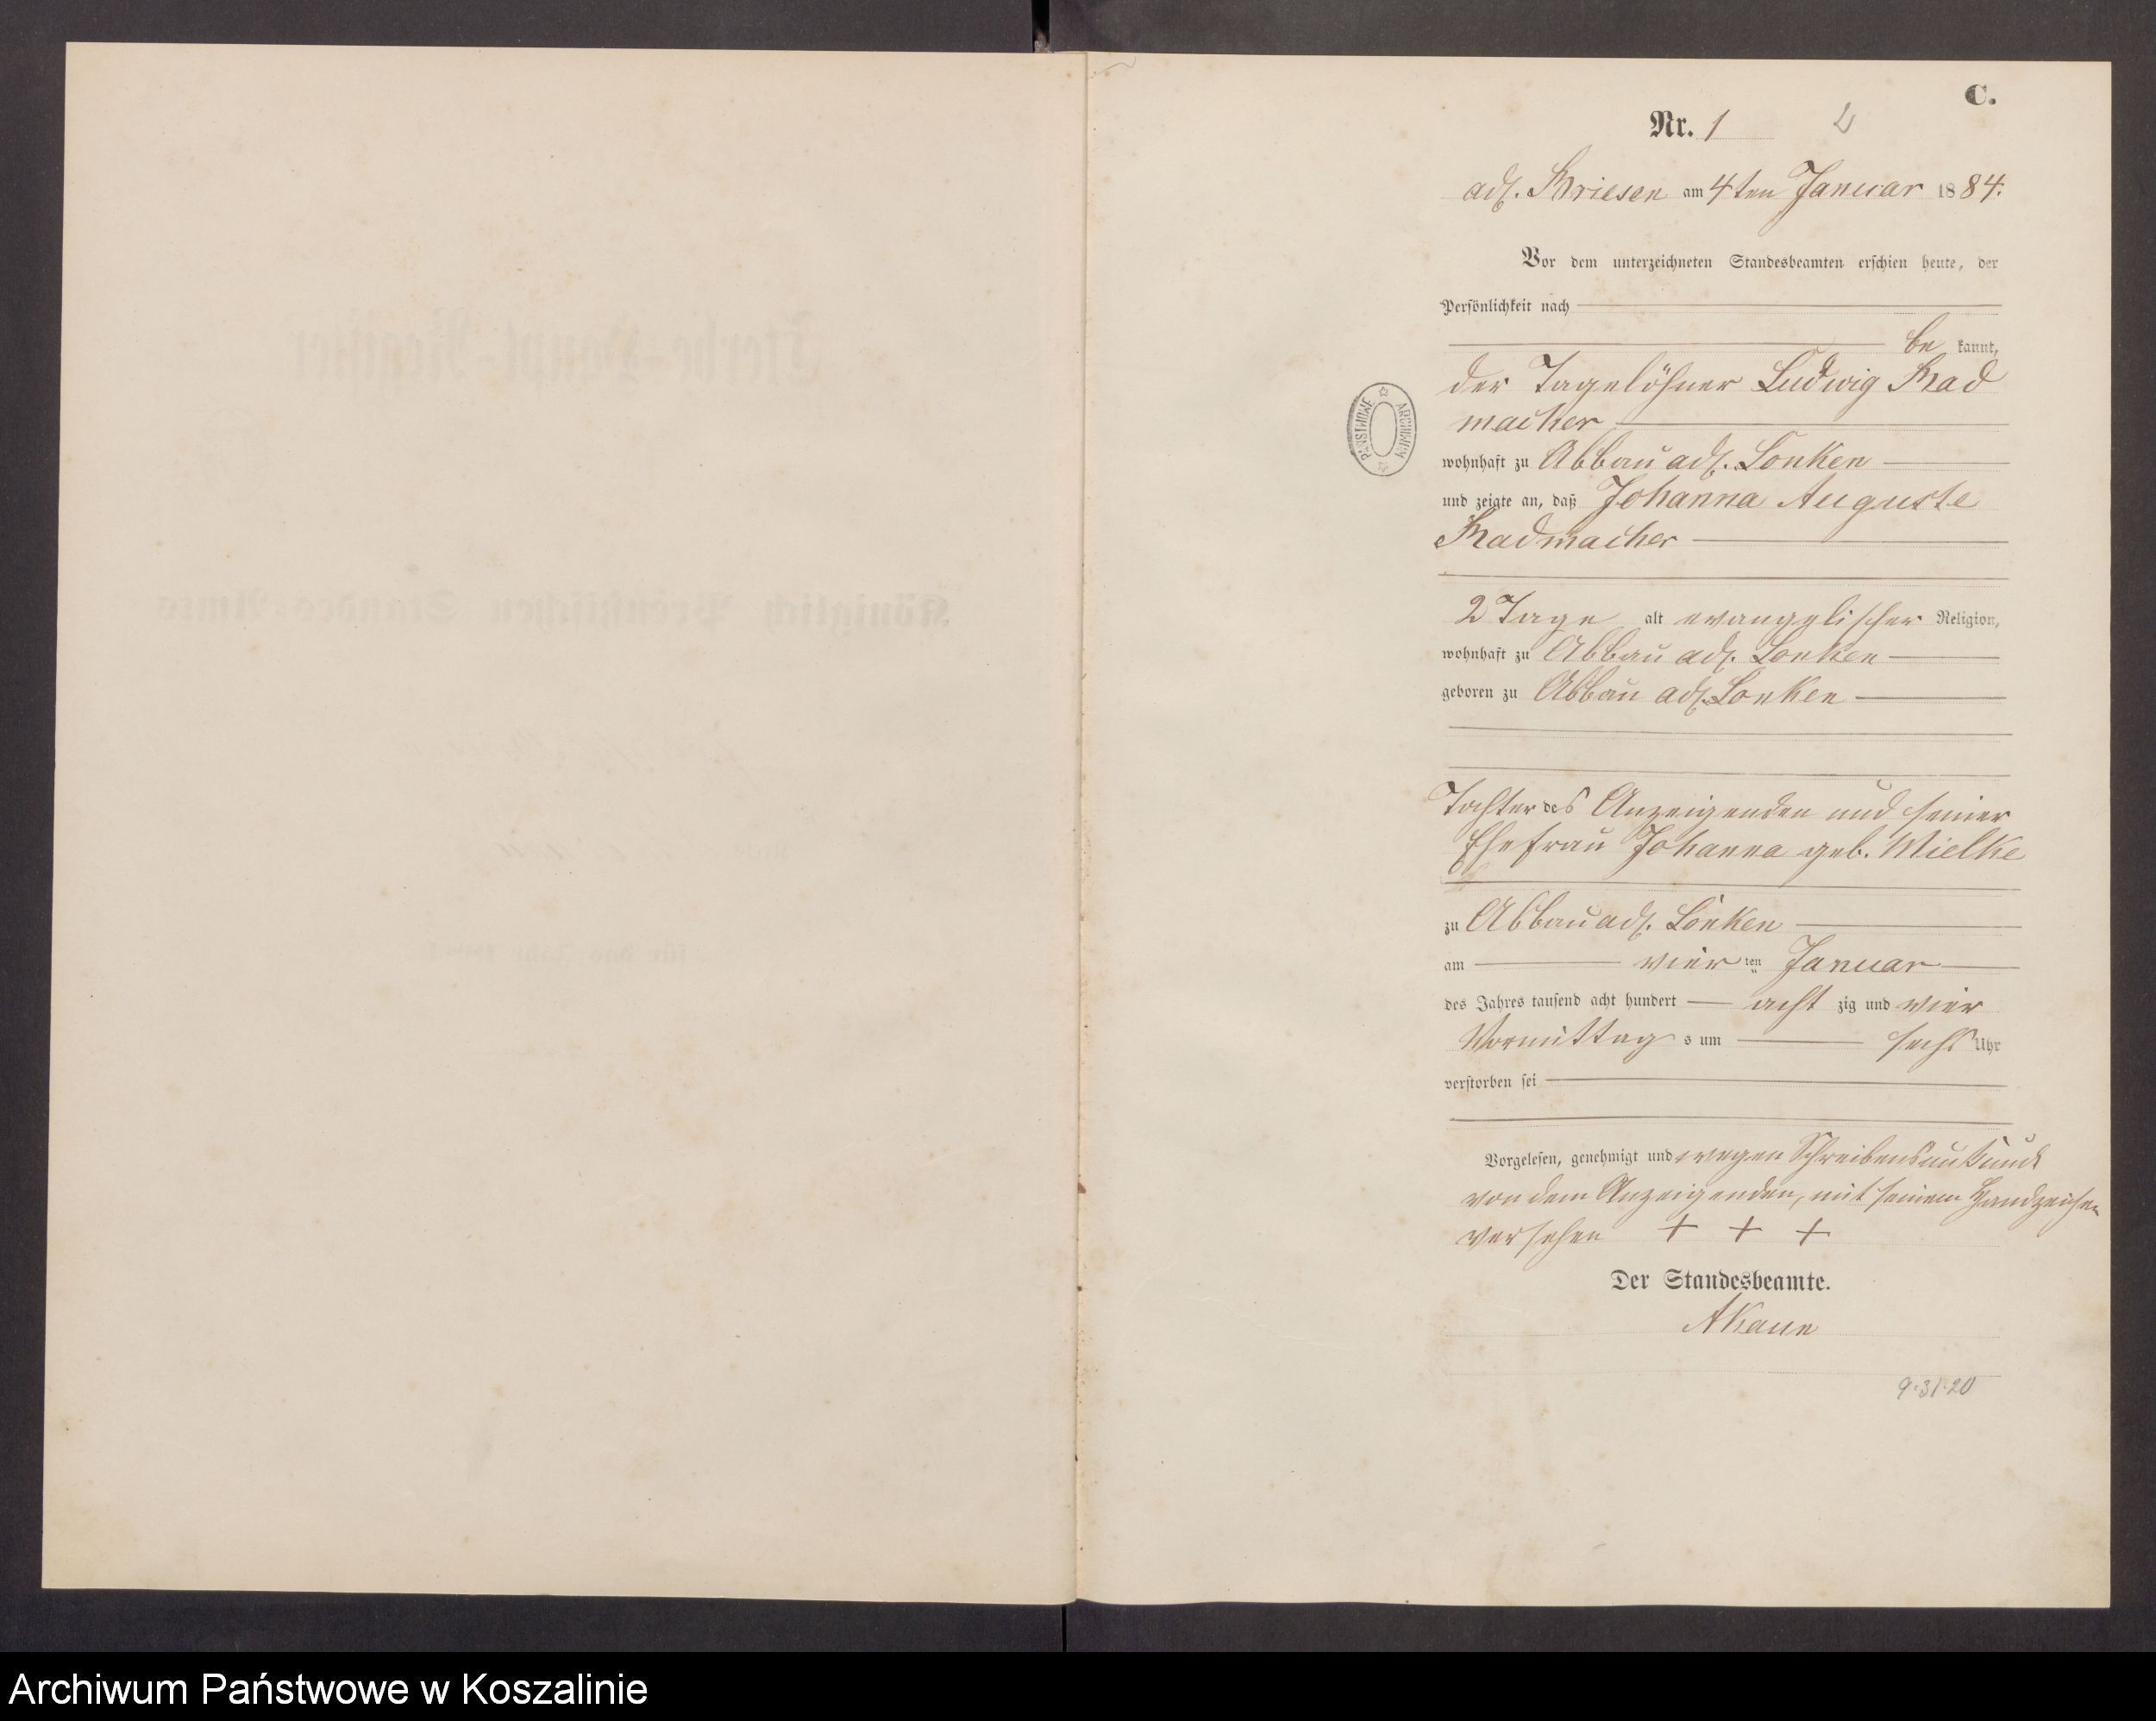 C.
Nr. 1
2
adl. Briesen am 4ten Januar 1884.
Vor dem unterzeichneten Standesbeamten erschien heute, der
Persönlichkeit nach
be kannt,
der Tagelöhner Ludwig Rad
macher
wohnhaft zu Abbau adl. Lonken
und zeigte an, daß Johanna Auguste
Radmacher
2 Tage alt evangelischer Religion,
wohnhaft zu Abbau adl. Lonken
geboren zu Abbau adl. Lonken
Tochter des Anzeigenden und seiner
Ehefrau Johanna geb. Mielke
zu Abbau adl. Lonken
am vier ten Januar
des Jahres tausend acht hundert acht zig und vier
Vormittag s um sechs Uhr
verstorben sei
Vorgelesen, genehmigt und wegen Schreibensunkunde
von dem Anzeigenden, mit seinem Handzeichen
versehen + + +
Der Standesbeamte.
9·31·20
ARCHIWUM PAŃSTWOWE
Sterbe-Haupt-Register
Königlich Preußischen Standes-Amts
für das Jahr
Archiwum Państwowe w Koszalinie